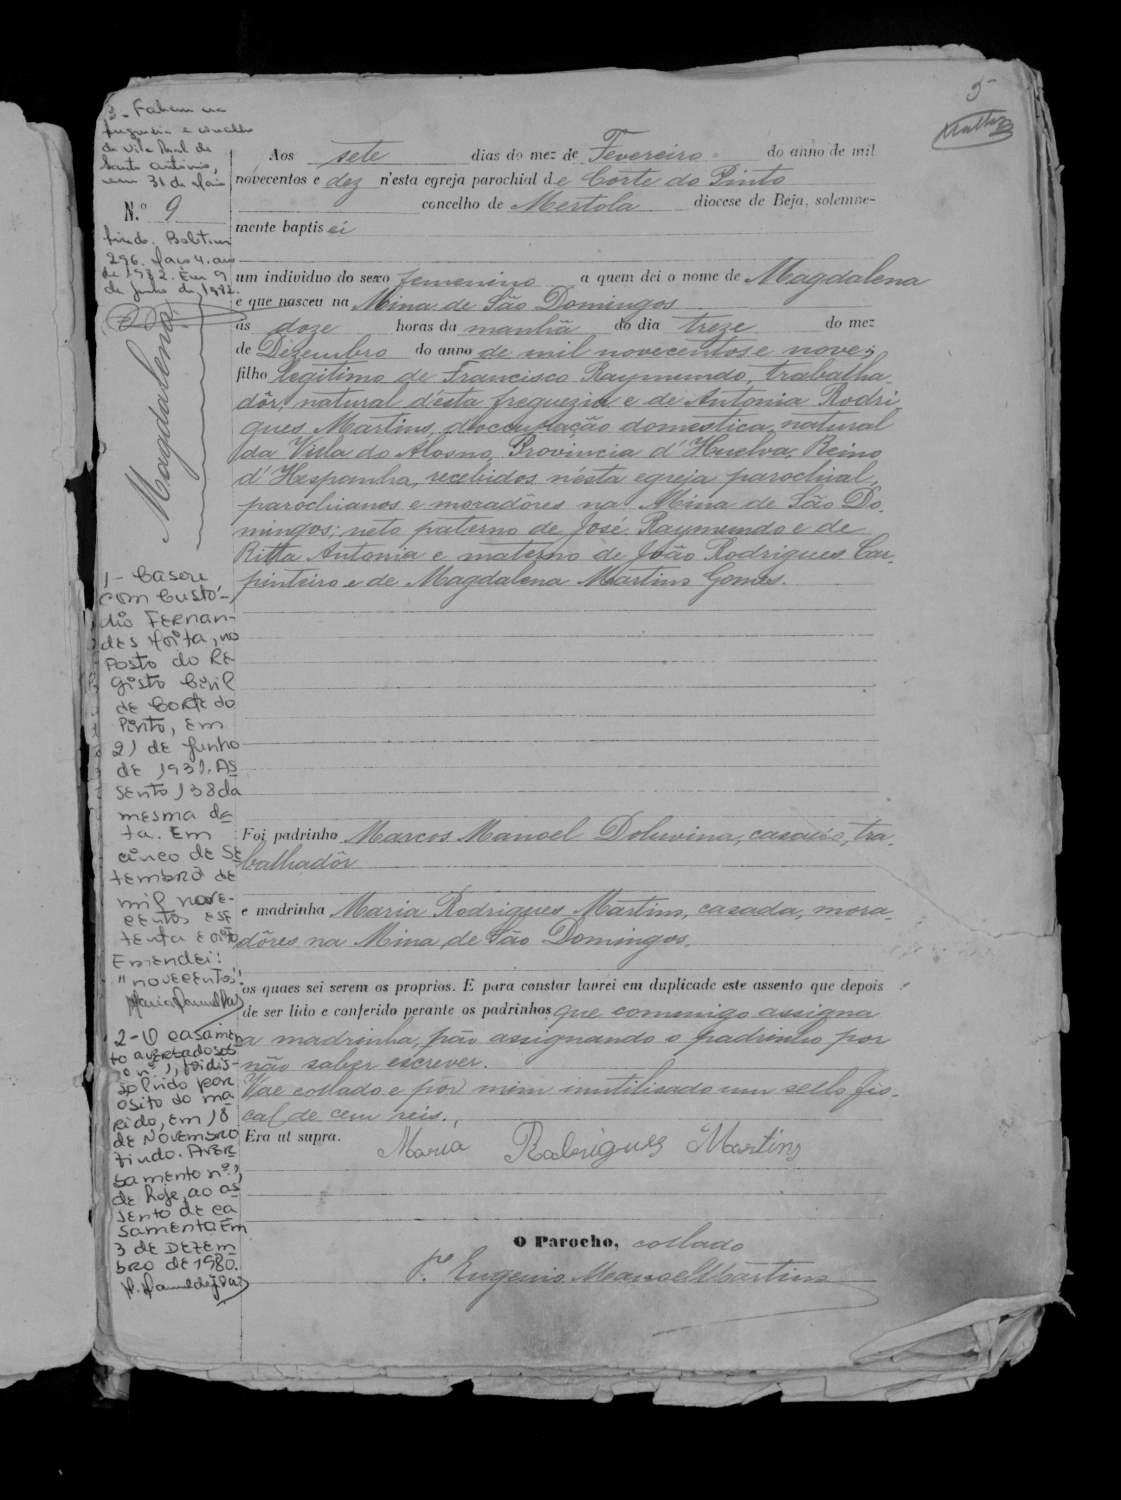 5
3 - Faleceu na
freguesia e concelho
de Vila Real de
Santo António,
em 31 de Maio
N.º 9
findo. Boletim
296. Maço 4. ano
de 1982. Em 9
de Junho de 1982.
Magdalena
1 - Casou
com Custó-
dio Fernan-
des Moita, no
Posto do Re
gisto Civil
de Corte do
Pinto, em
21 de Junho
de 1931. As
sento 138 da
mesma da
ta. Em
cinco de Se
tembro de
mil nove-
centos e se
tenta e oito
Emendei:
"novecentos".
2 - O casamen
to averbado sob
o nº 1, foi dis-
solvido por
óbito do ma
rido, em 18
de Novembro
findo. Aver
bamento nº 1,
de hoje, ao as
sento de ca
samento. Em
3 de Dezem
bro de 1980.
Aos sete dias do mez de Fevereiro do anno de mil
novecentos e dez n'esta egreja parochial de Corte do Pinto
concelho de Mertola diocese de Beja, solemne-
mente baptisei
um individuo do sexo femenino a quem dei o nome de Magdalena
e que nasceu na Mina de São Domingos
ás doze horas da manhã do dia treze do mez
de Dezembro do anno de mil novecentos e nove;
filho legitimo de Francisco Raymundo, trabalha-
dôr, natural d'ésta freguezia e de Antonia Rodri
gues Martins, d'occupação domestica, natural
da Villa do Alosno, Provincia d'Huelva, Reino
d'Hespanha, recebidos n'ésta egreja parochial,
parochianos e moradôres na Mina de São Do-
mingos; neto paterno de José Raymundo e de
Ritta Antonia e materno de João Rodrigues Car-
pinteiro e de Magdalena Martins Gomes.
Foi padrinho Marcos Manoel Doluvina, casado, tra-
balhadôr
e madrinha Maria Rodrigues Martins, casada, mora-
dôres na Mina de São Domingos.
os quaes sei serem os proprios. E para constar lavrei em duplicado este assento que depois
de ser lido e conferido perante os padrinhos que commigo assigna
a madrinha, não assignando o padrinho por
não saber escrever.
Vae collado e por mim inutilisado um sello fis-
cal de cem reis.
Era ut supra.
Maria Rodrigues Martins
O Parocho, collado
P.e Eugenio Manoel Martins